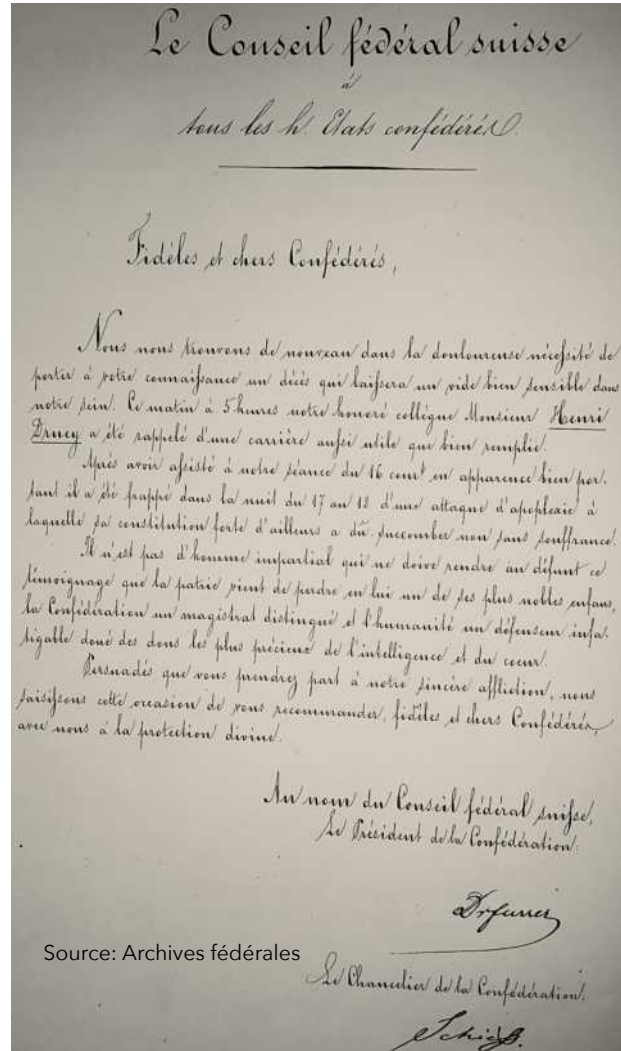 Le Conseil fédéral suisse
à
tous les h. Etats confédérés.
Fidèles et chers Confédérés,
Nous nous trouvons de nouveau dans la douloureuse nécessité de
porter à votre connaissance un décès qui laissera un vide bien sensible dans
notre sein. Ce matin à 5 heures notre honoré collègue Monsieur Henri
Druey a été rappelé d'une carrière aussi utile que bien remplie.
Après avoir assisté à notre séance du 16 court en apparence bien por-
tant il a été frappé dans la nuit du 17 au 18 d'une attaque d'apoplexie à
laquelle sa constitution forte d'ailleurs a dû succomber non sans souffrance.
Il n'est pas d'homme impartial qui ne doive rendre au défunt ce
témoignage que la patrie vient de perdre en lui un de ses plus nobles enfans,
la Confédération un magistrat distingué et l'humanité un défenseur infa-
tigable doué des dons les plus précieux de l'intelligence et du coeur.
Persuadés que vous prendrez part à notre sincère affliction, nous
saisissons cette occasion de vous recommander, fidèles et chers Confédérés,
avec nous à la protection divine.
Au nom du Conseil fédéral suisse,
Le Président de la Confédération:
Dr Furrer
Source: Archives fédérales
Le Chancelier de la Confédération:
Schieß.